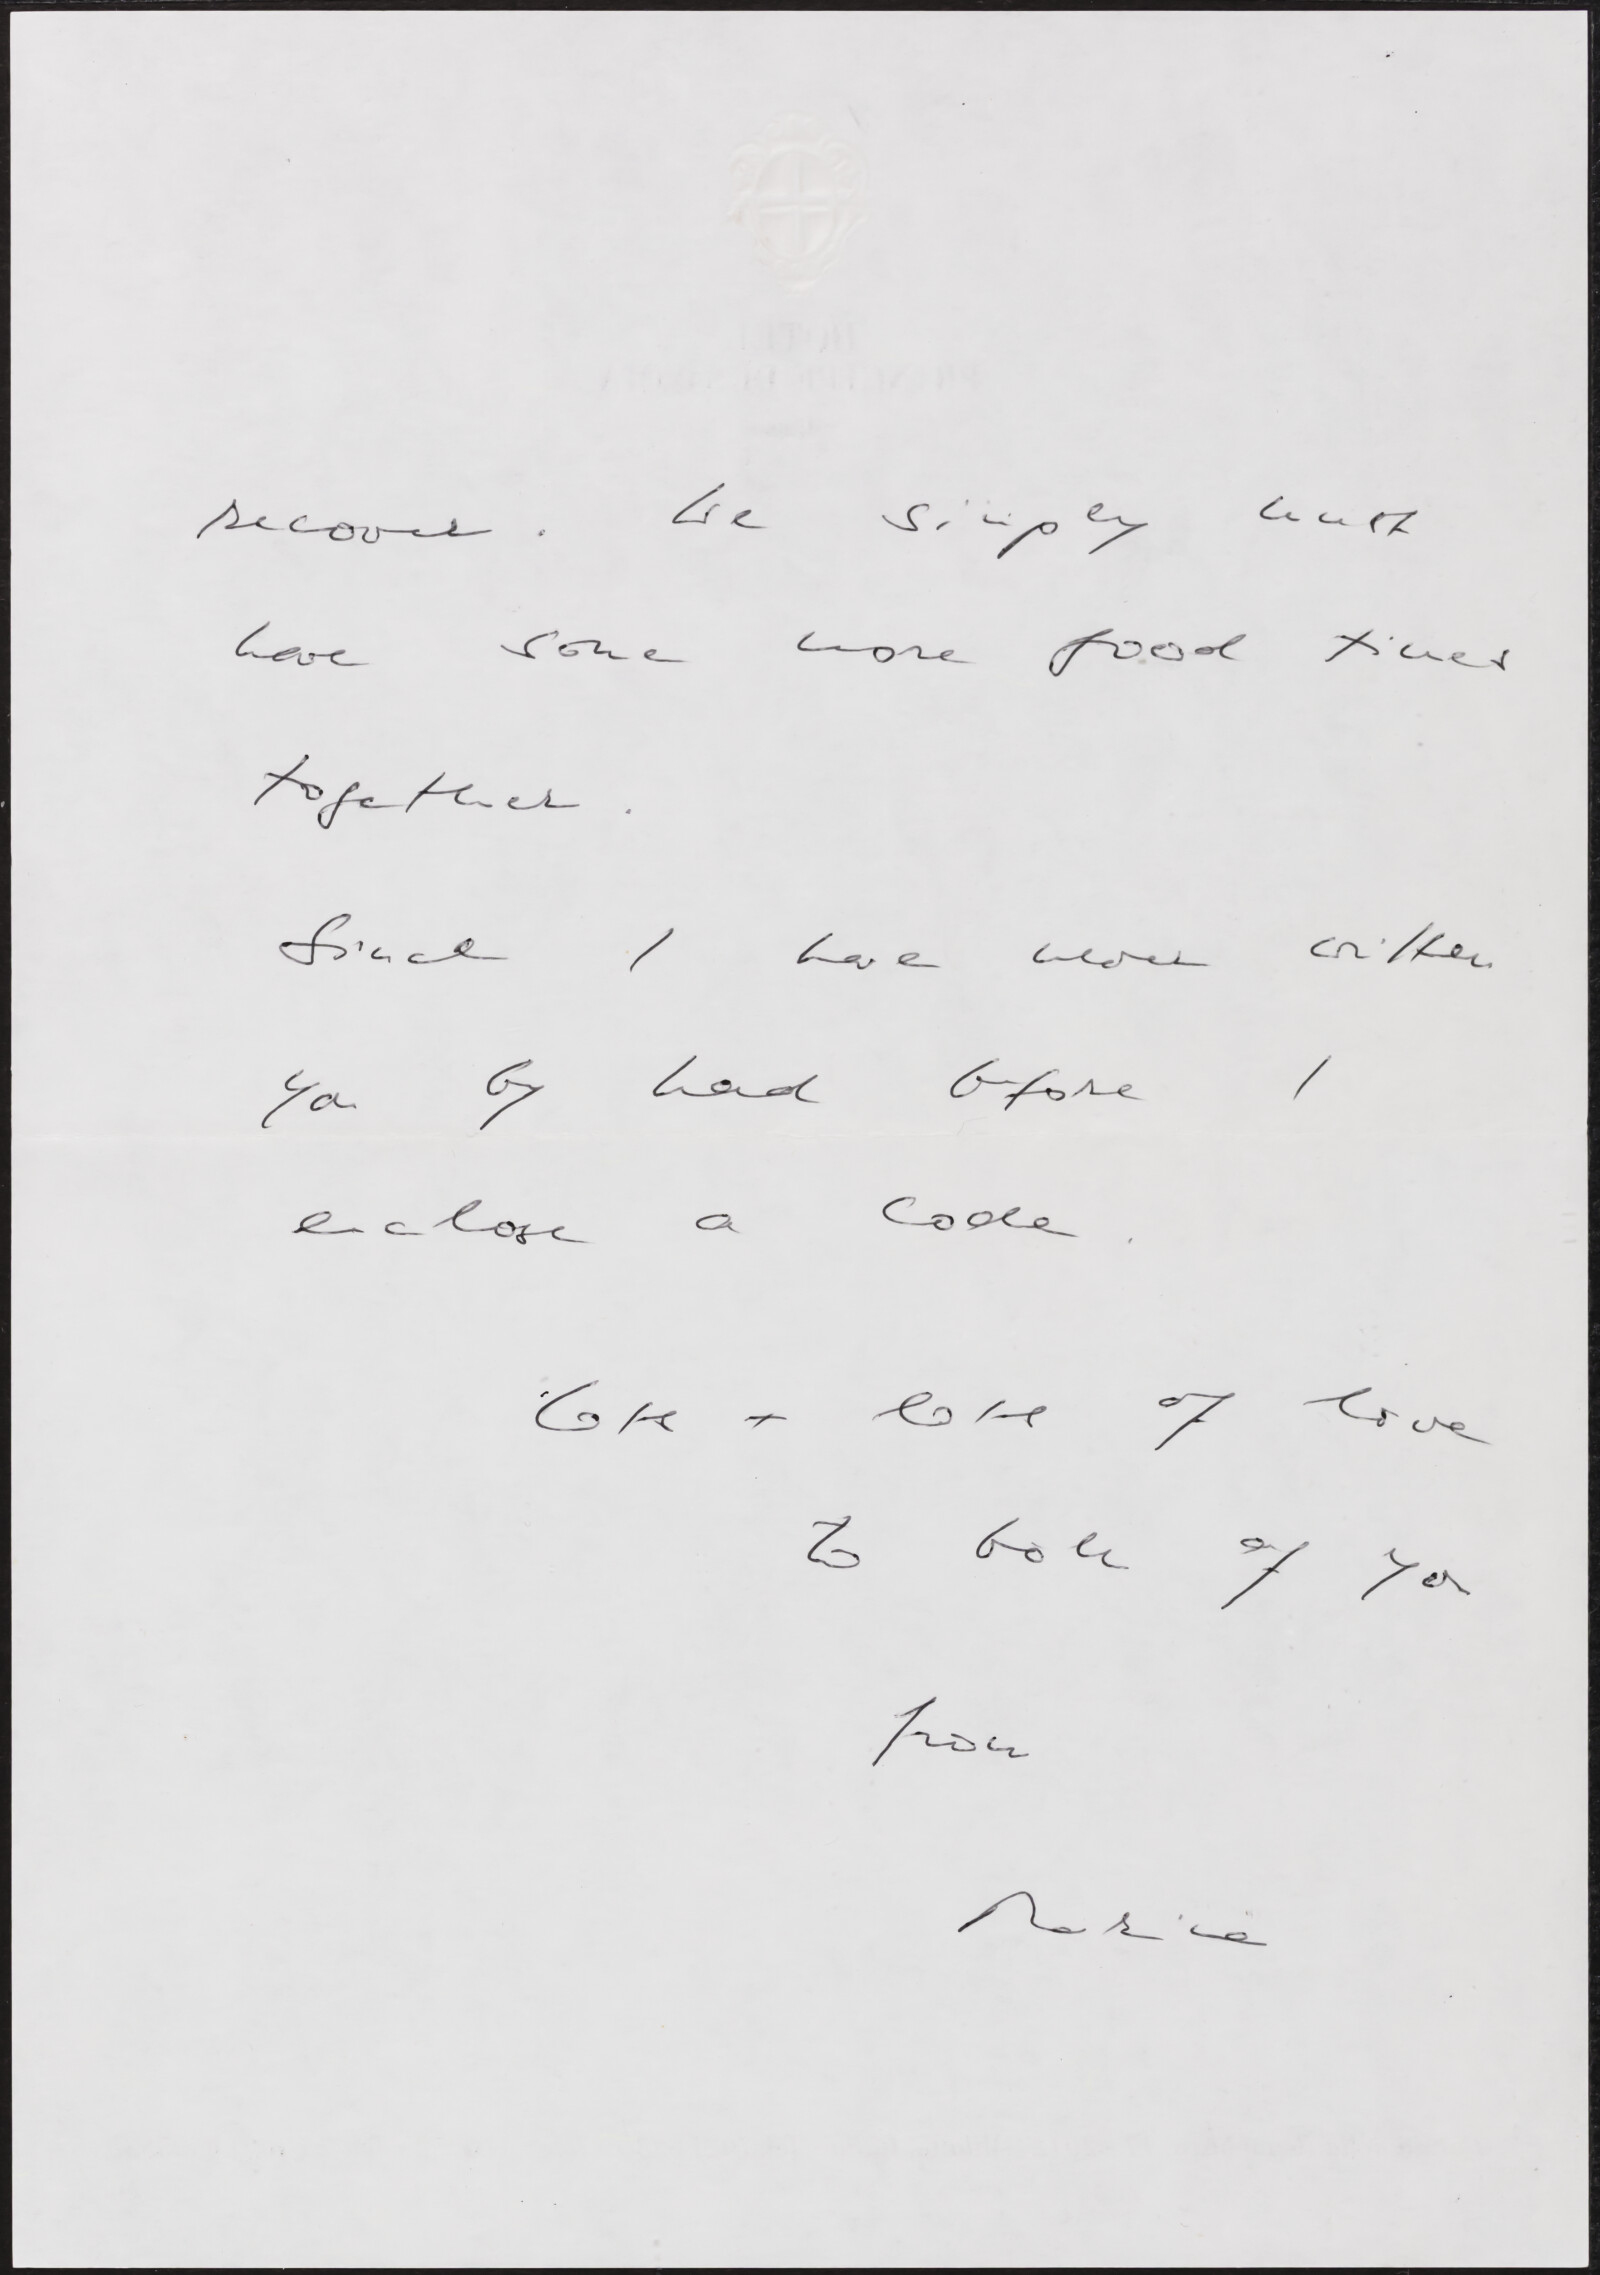 recover. We simply must
have some more good times
together.
Since I have never written
you by hand before I
enclose a code.
Lots + lots of love
to both of you
from
HOTEL
PRINCIPE DI SAVOIA